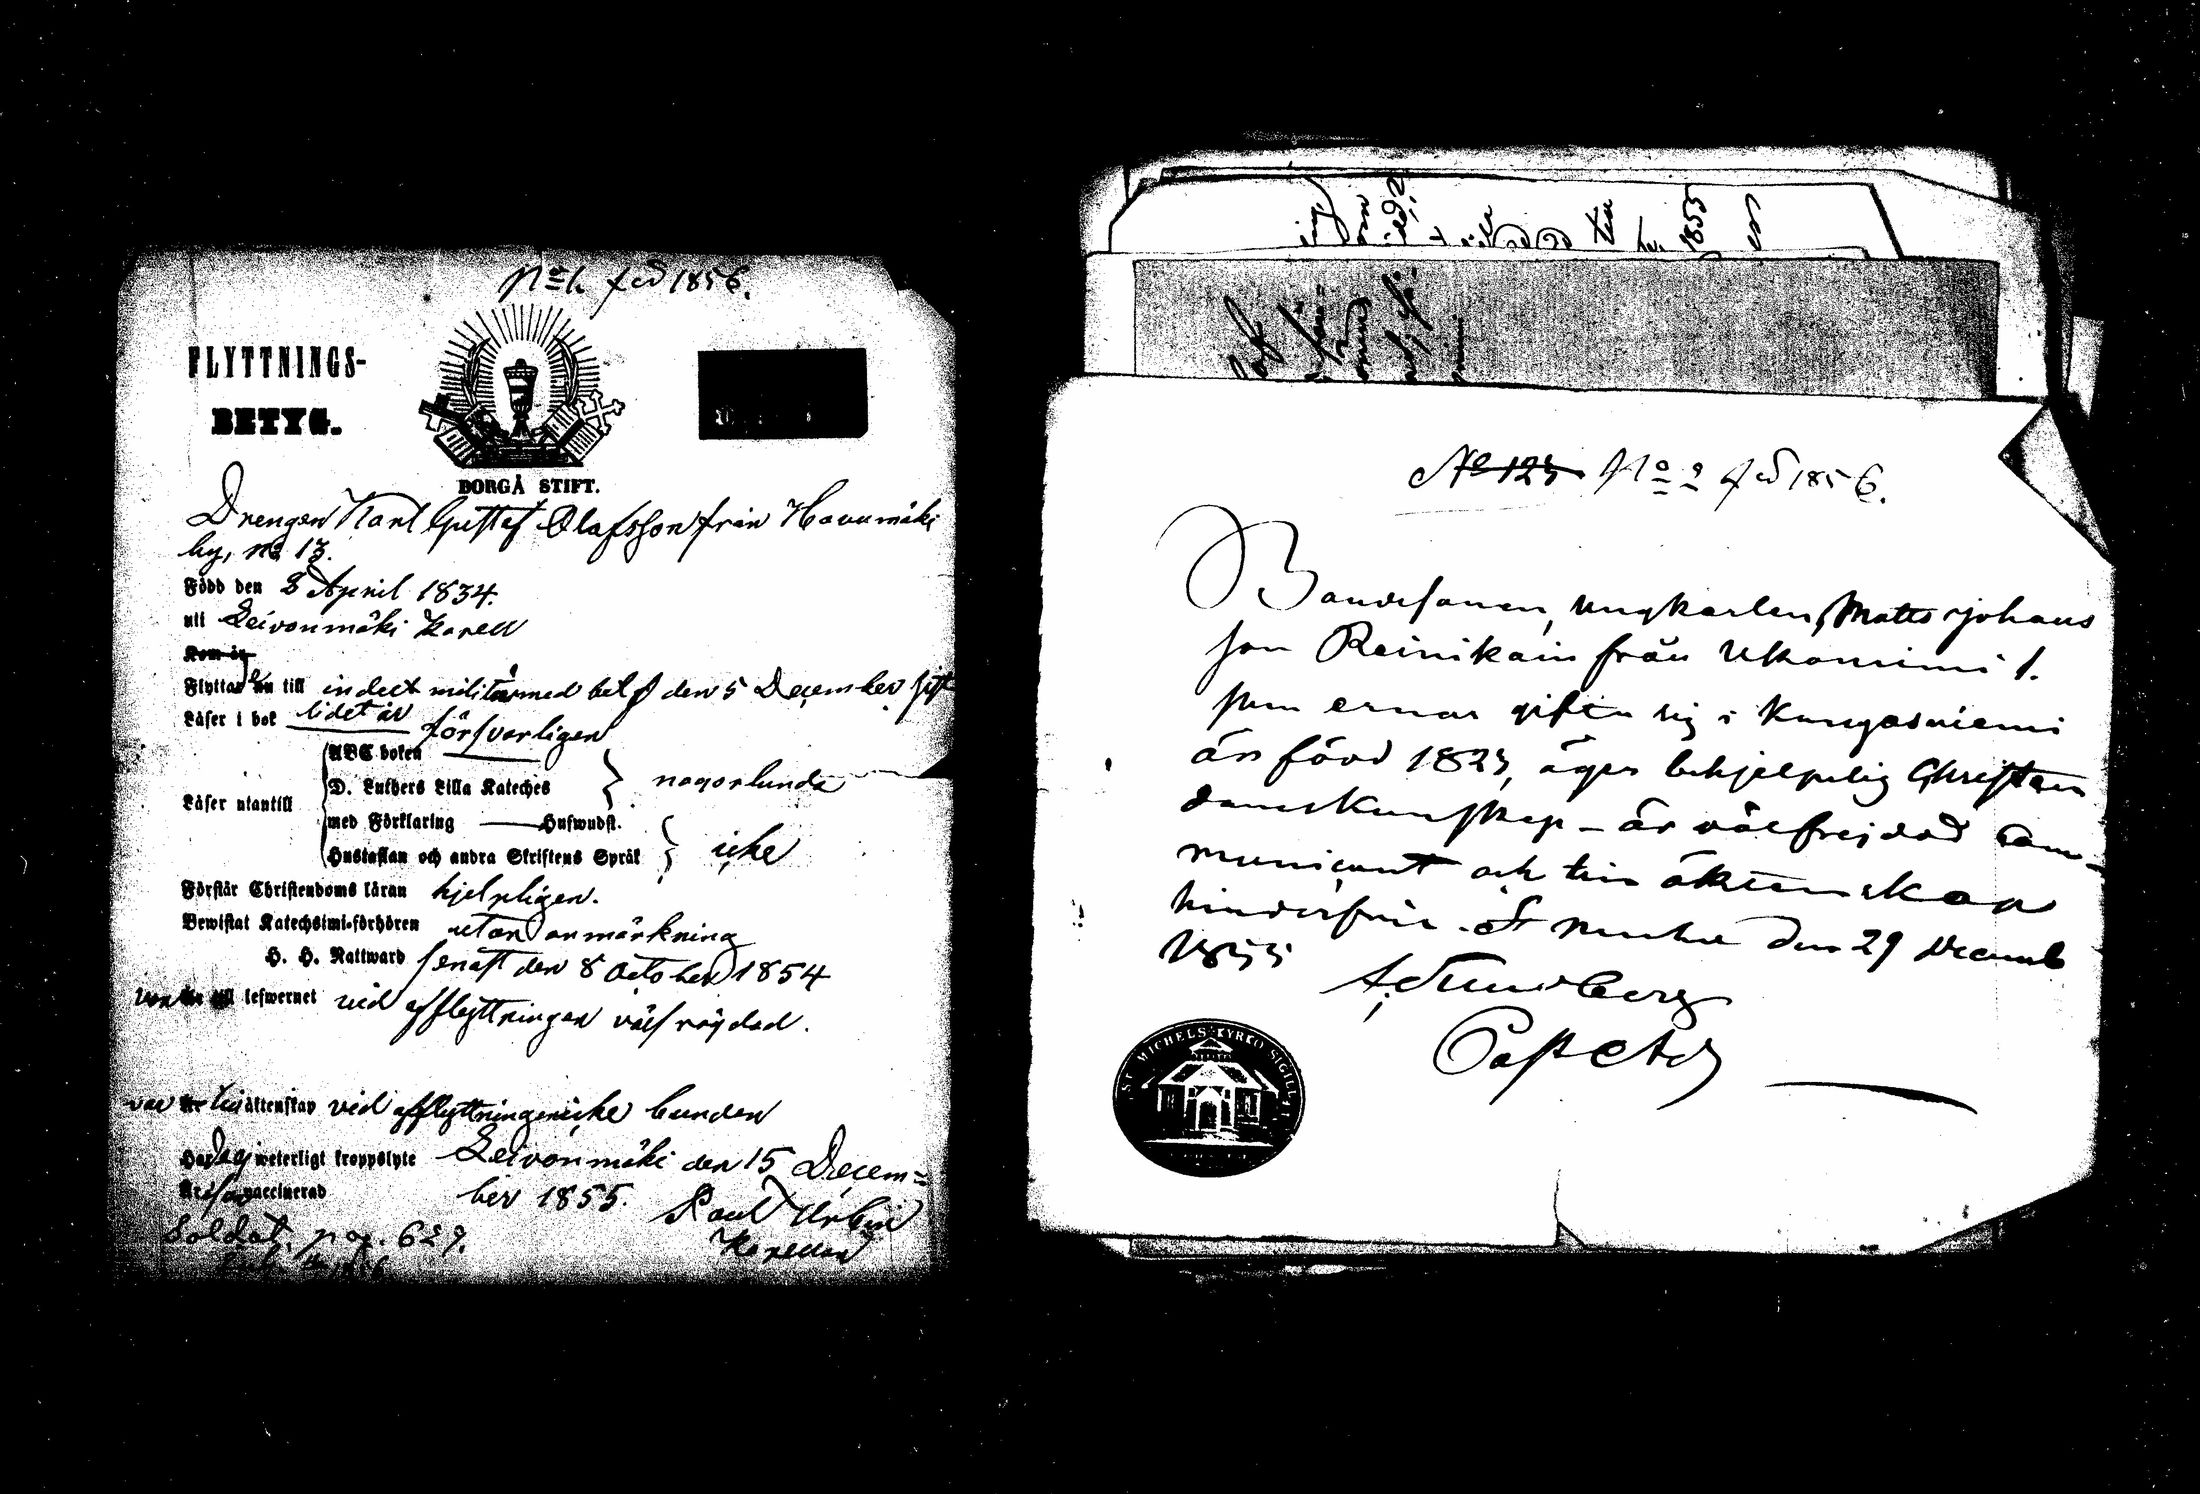 No 1. fcd 1856.
FLYTTNINGS-
BETYG.
BORGÅ STIFT.
Drengen Karl Gustaf Olafsson från Havumäki
by, no 13.
Född den 8 April 1834.
uti Leivonmäki kapell
Kom år
Flyttade nu till indect militär med bet. den 5 December sist
lidet år
Läser i bok försvarligen
ABC boken
D. Luthers Lilla Kateches
någorlunda
Läser utantill
med Förklaring Huswudst.
Hustaflan och andra Skriftens Språk
icke
Förstår Christendoms läran hjelpligen.
Bewistat Katechsimi-förhören utan anmärkning
H. H. Nattward senast den 8 October 1854
var till lefwernet vid afflyttningen välfrägdad.
var till äktenskap vid afflyttningen icke bunden
Har ej weterligt kroppslyte Leivonmäki den 15 Decem=
Är vaccinerad ber 1855. Paul Urbin
Kapellan
Soldat. pag. 627.
No 123 No 2 fcd 1856.
Bondesonen, ungkarlen, Matts Johans
son Reinikain från Ukonniemi 1.
som ernar gifta sig i Kangasniemi
är född 1823, äger behjelpelig Christen
domskunskap – är välfrejdad Com-
municant och till äktenskap
hinderfri. St Michel den 29 Decemb
1855
ST. MICHELS KYRKO SIGILL
1855